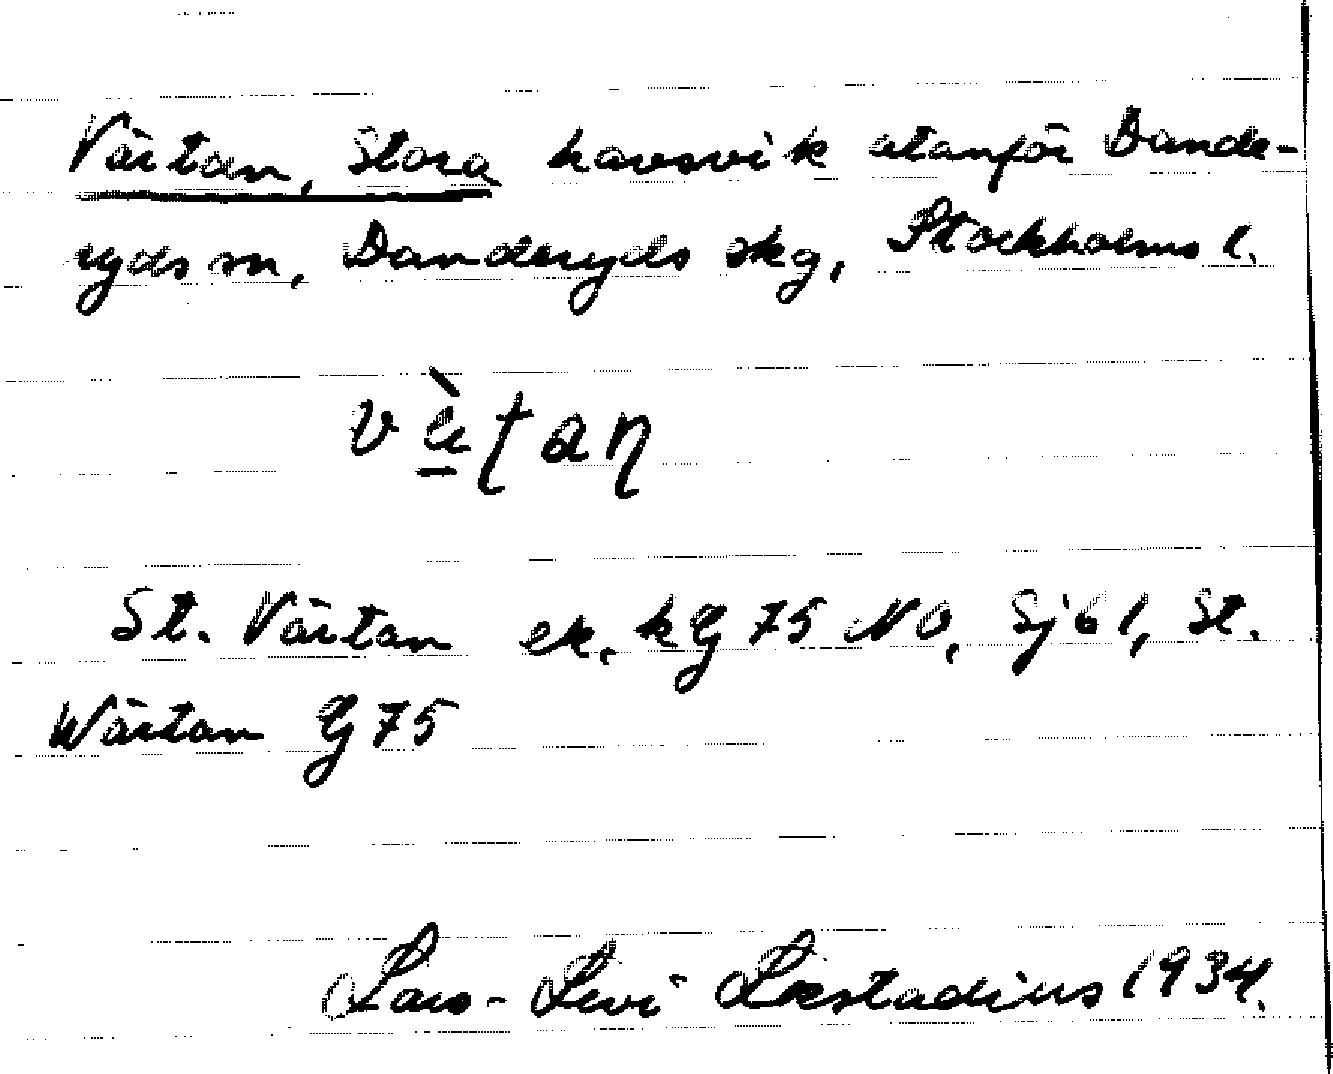 Värtan, Stora havsvik utanför Dande-
ryds sn, Danderyds skg, Stockholms l.
vä̀ʈaɳ
St. Värtan ek. kG 75 NO, Sj61, St.
Wärtan G 75
Lars-Levi Læstadius 1934.